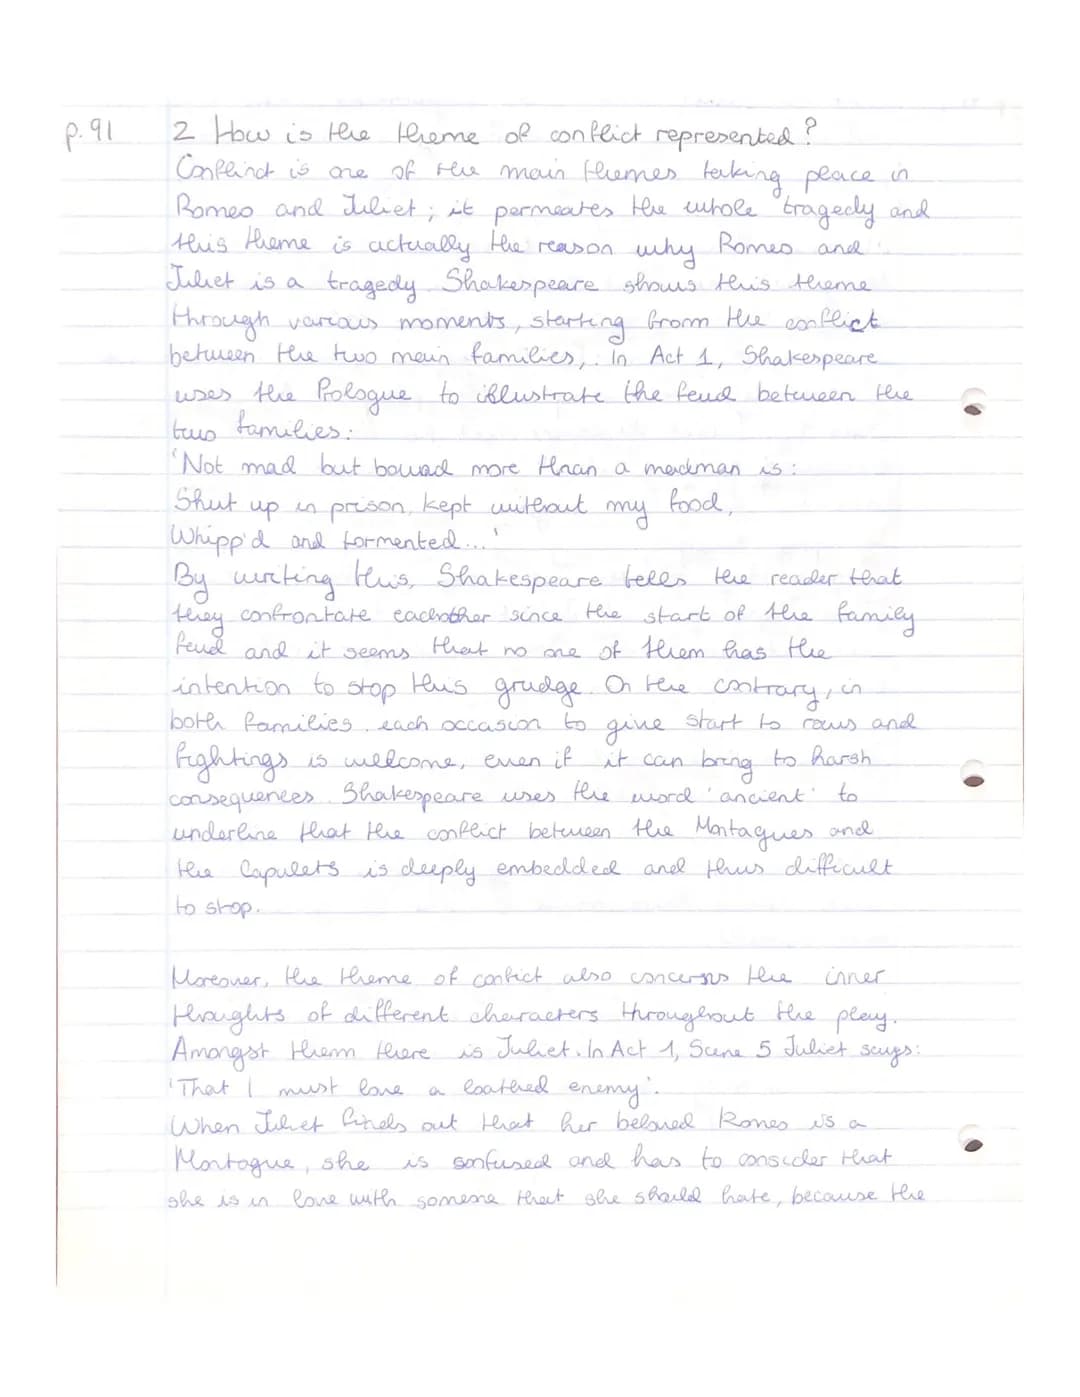 p.91 2 How is the theme of conflict represented?
Conflinct is one of the main themes taking place in
Romeo and Juliet; it permeates the whole tragedy and
this theme is actually the reason why Romeo and
Juliet is a tragedy. Shakespeare shows this theme
through various moments, starting from the conflict
between the two main families,. In Act 1, Shakespeare
uses the Prologue to illustrate the feud between the
two families:
'Not mad but bound more than a madman is:
Shut up in prison, kept without my food,
Whipp'd and tormented...'
By writing this, Shakespeare tells the reader that
they confrontate eachother since the start of the family
feud and it seems that no one of them has the
intention to stop this grudge. On the contrary, in
both families each occasion to give start to rows and
fightings is welcome, even if it can bring to harsh
consequences. Shakespeare uses the word 'ancient' to
underline that the conflict between the Montagues and
the Capulets is deeply embedded and thus difficult
to stop.
Moreover, the theme of conflict also concerns the inner
thoughts of different characters throughout the play.
Amongst them there is Juliet. In Act 1, Scene 5 Juliet says:
'That I must love a loathed enemy'.
When Juliet finds out that her beloved Romeo is a
Montague, she is confused and has to consider that
she is in love with someone that she should hate, because the